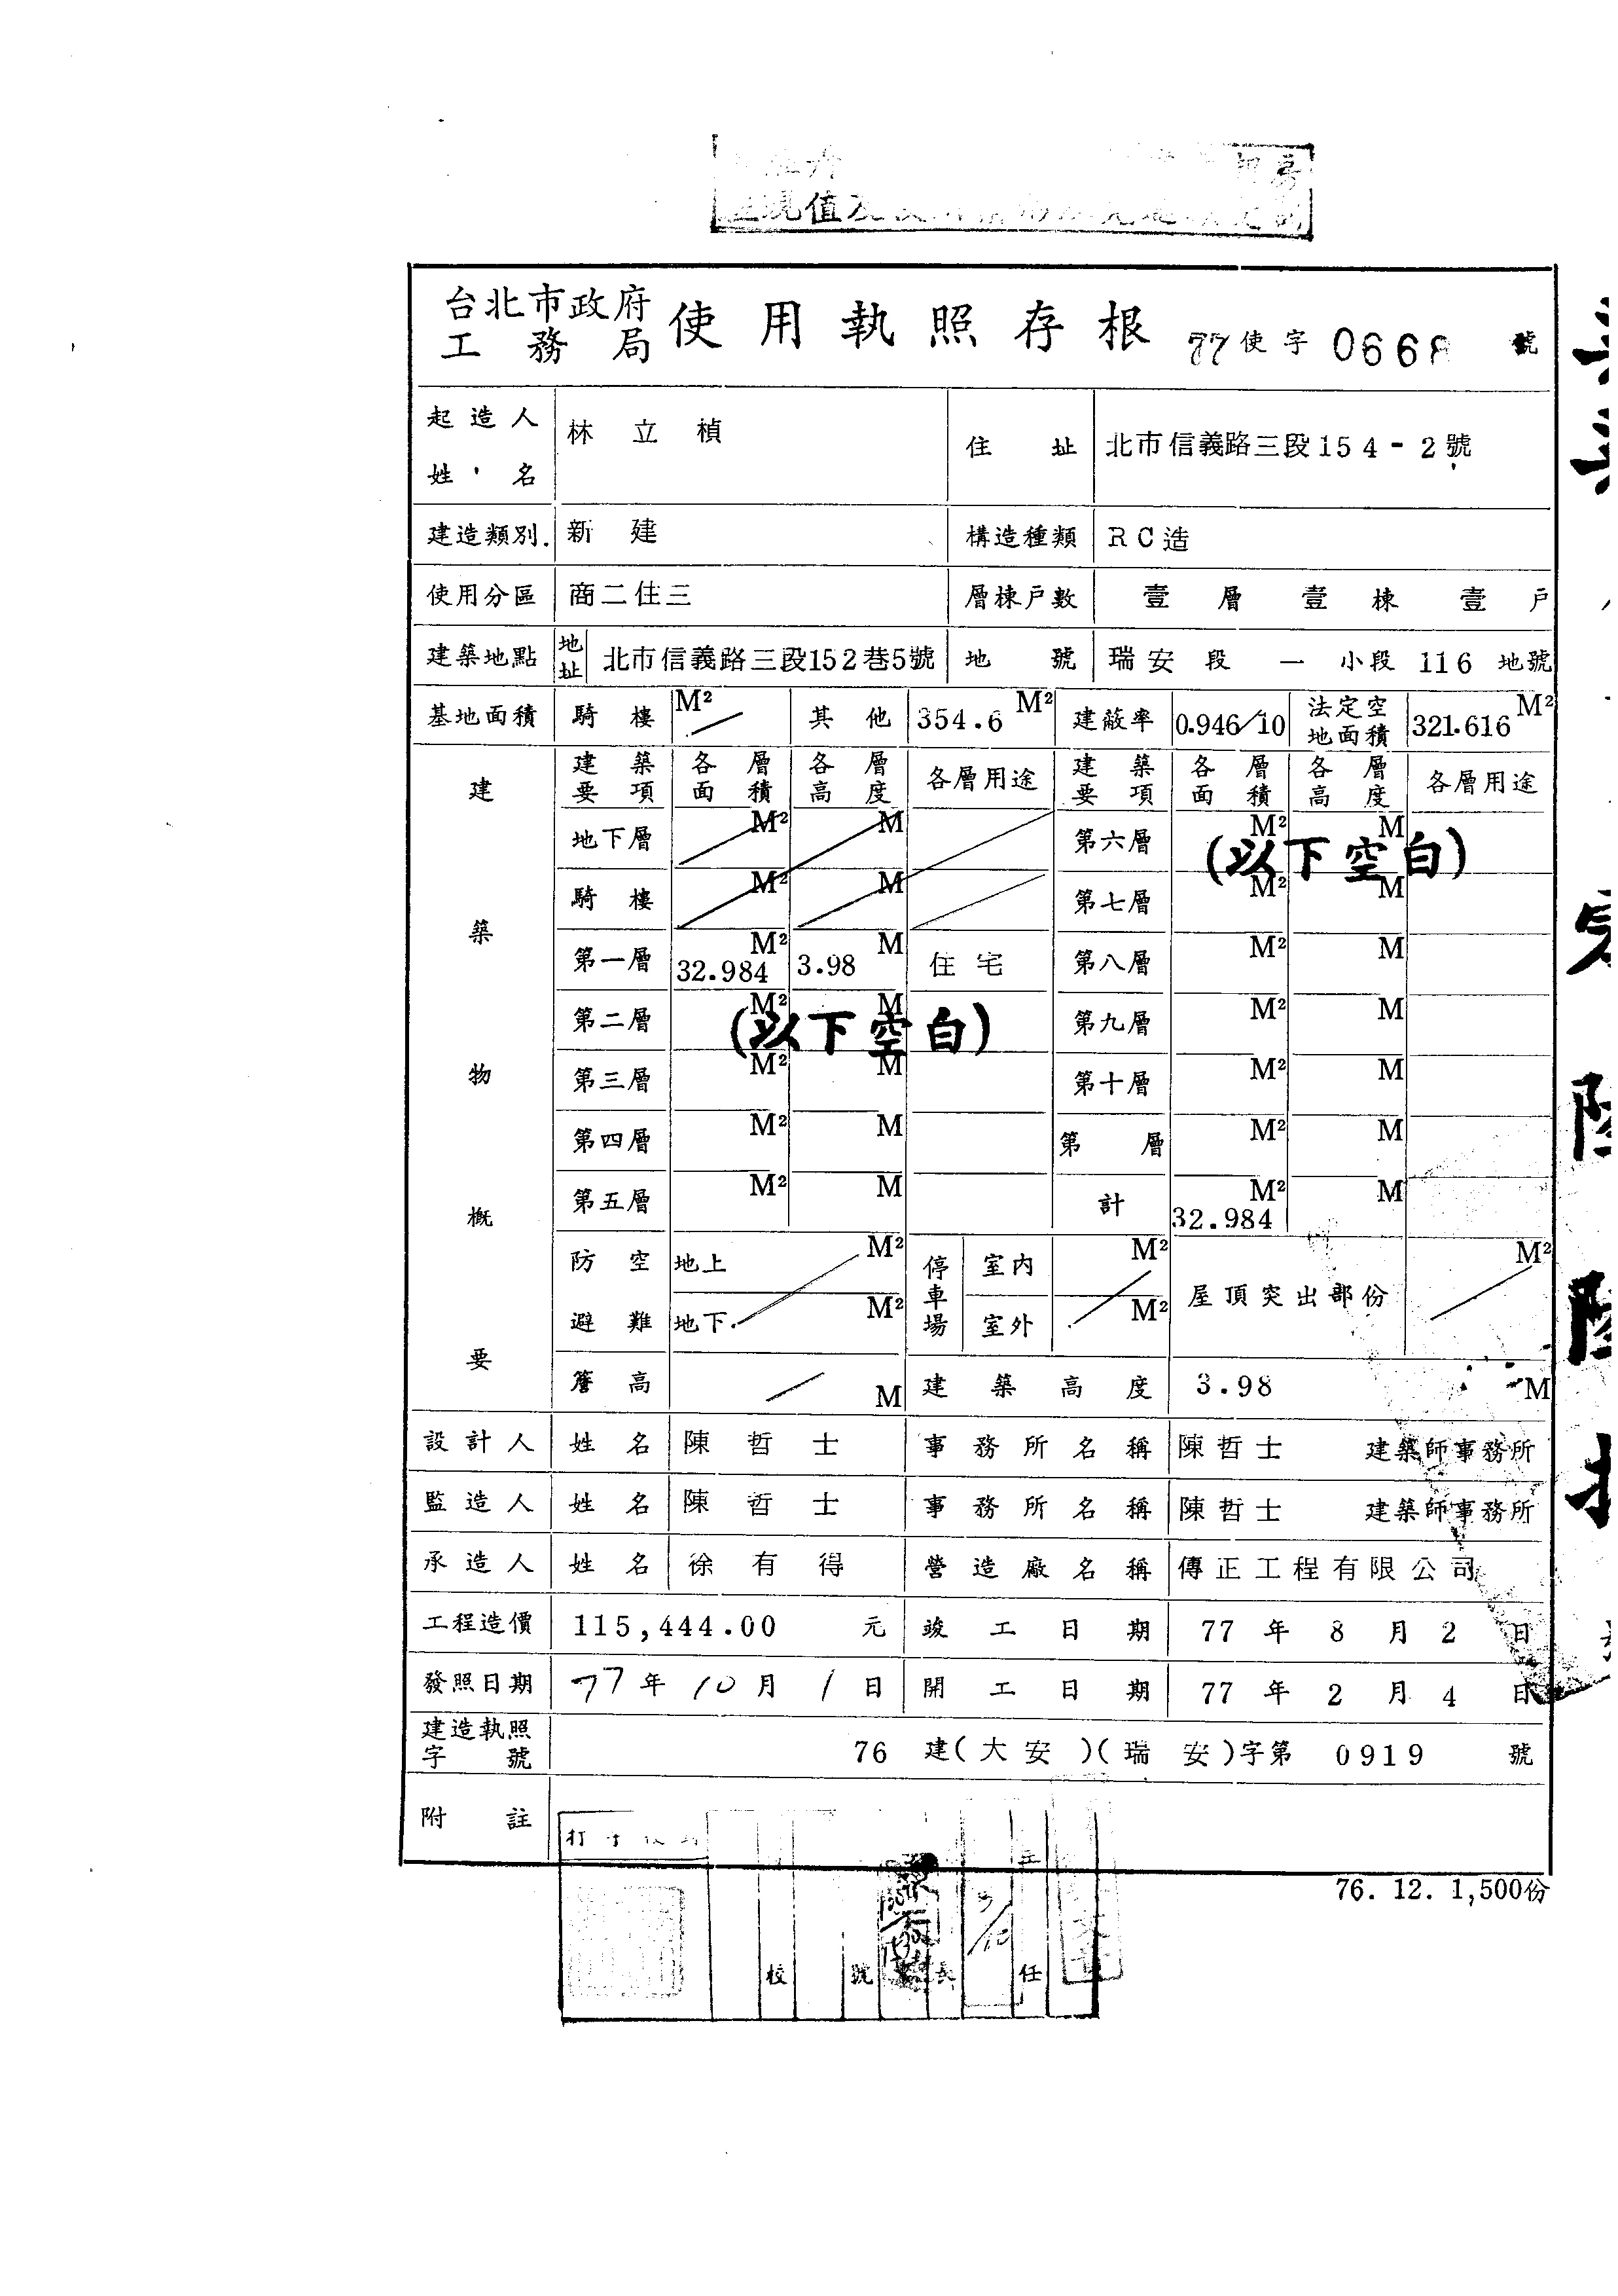 台北市政府
工務局 使用執照存根 77使字0668號
起造人姓名 林立楨 住址 北市信義路三段154-2號
建造類別 新建 構造種類 RC造
使用分區 商二住三 層棟戶數 壹層壹棟壹戶
建築地點 地址 北市信義路三段152巷5號 地號 瑞安段一小段116地號
基地面積 騎樓 M² 其他 354.6 M² 建蔽率 0.946/10 法定空地面積 321.616 M²
建築物概要 建築要項 各層面積 各層高度 各層用途 建築要項 各層面積 各層高度 各層用途
地下層 M² M 第六層 M² M
(以下空白)
騎樓 M² M 第七層 M² M
第一層 32.984 M² 3.98 M 住宅 第八層 M² M
第二層 M² M 第九層 M² M
(以下空白)
第三層 M² M 第十層 M² M
第四層 M² M 第 層 M² M
第五層 M² M 計 32.984 M² M
防空避難 地上 M² 停車場 室內 M² 屋頂突出部份 M²
地下 M² 室外 M²
簷高 M 建築高度 3.98 M
設計人 姓名 陳哲士 事務所名稱 陳哲士 建築師事務所
監造人 姓名 陳哲士 事務所名稱 陳哲士 建築師事務所
承造人 姓名 徐有得 營造廠名稱 傳正工程有限公司
工程造價 115,444.00 元 竣工日期 77年8月2日
發照日期 77年10月1日 開工日期 77年2月4日
建造執照字號 76建(大安)(瑞安)字第0919號
附註
76. 12. 1,500份
校 號 長 任